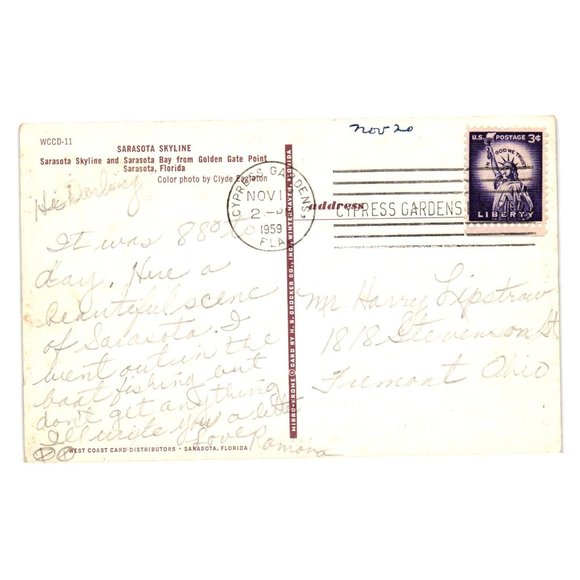 WCCD-11
SARASOTA SKYLINE
Sarasota Skyline and Sarasota Bay from Golden Gate Point
Sarasota, Florida
Color photo by Clyde Eagleton
Hi Darling
It was 88° to
day. Here a
beautiful scene
of Sarasota. I
went out in the
boat fishing but
don't get anything
I'll write you a letter
Love Ramona
WEST COAST CARD DISTRIBUTORS • SARASOTA, FLORIDA
MIRRO-KROME ® CARD BY H. S. CROCKER CO., INC. WINTER HAVEN, FLORIDA
Nov 20
CYPRESS GARDENS,
NOV 1
2-
1959
FLA.
address
CYPRESS GARDENS
U.S. POSTAGE 3¢
IN GOD WE TRUST
LIBERTY
Mr. Harry Lipstraw
1818 Stevenson St
Fremont Ohio